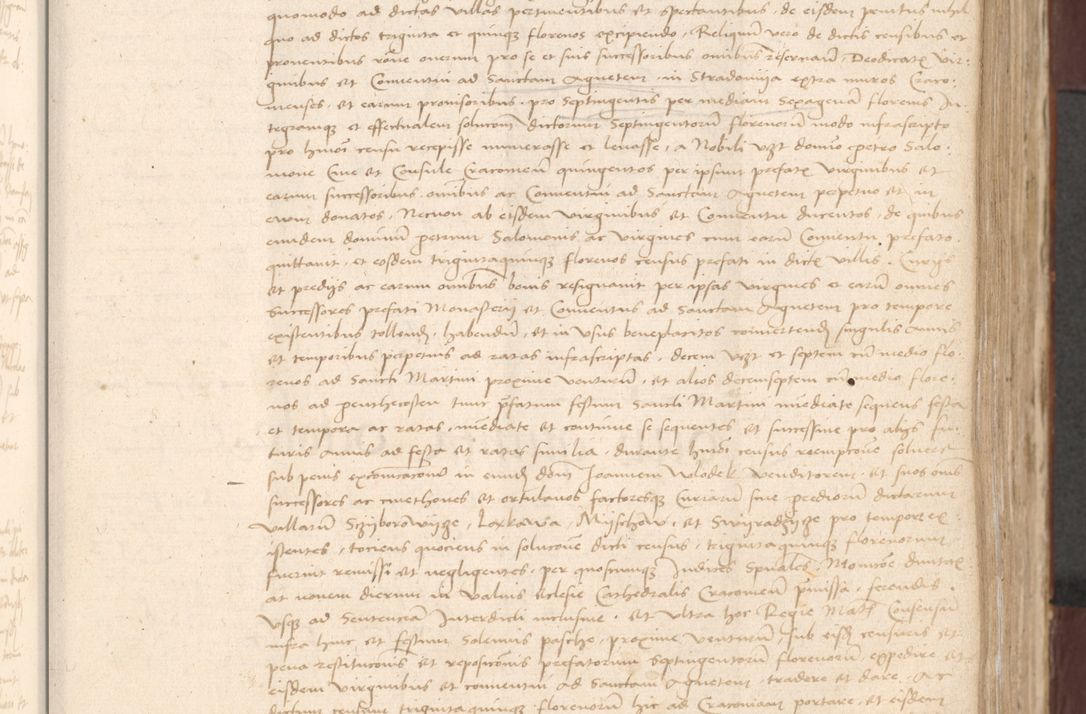 quomodo ad dictas villas pertinentibus et spectantibus, de eisdem penitus nihil
quo ad dictos triginta et quinq florenos excipiendo, Reliquū vero de dictis censibus et
proventibus rōne onerum pro se et suis successoribus omībus reservavit, Deodicatꝭ Vir-
ginibus et Conventui ad Sanctam Agnetem in Stradomija extra muros Craco-
vienses, et earum provisoribus, pro Septingentis per mediam Sexagenā florenis In-
tegramq et effectualem solucōnē dictorum Septingentorū florenorū modo infrascripto
pro hmōi censu recepisse numerasse et levasse, a Nobili vzt domīo Petro Salo-
mone Cive et Consule Cracovieñ quingentos per ipsum prefatꝭ virginibus et
earum successoribus omībus ac Conventui ad Sanctam Agnetem perpetuo et in
evum donatos, Necnon ab eisdem virginibus et Conventu ducentos, de quibus
eundem dominū Petrum Salomonis ac virgines cum earū Conventu prefato
quittavit, et eosdem trigintaquinq florenos census prefati in dictꝭ villis, Curijs
et predijs ac earum omībus bonis resignavit per ipsas virgines et earū omnes
Successores prefati Monasterij et Conventus ad Sanctam Agnetem pro tempore
existentibus tollendꝭ, habendū, et in usus beneplacitos convertendꝭ singulis annis
et temporibus perpetuis ad ratas infrascriptas, decem vzt et septem cū medio flo-
renos ad Sancti Martini proxime venturū, et alios decemseptem cū medio flore-
nos ad penthecosten tunc p̄fatum festum Sancti Martini imediate sequens festa
et tempora ac ratas, imediate et continue se sequentes et successive pro alijs fu-
turis annis ad festa et ratas similia, durante hmōi census reempcōne solvere
sub penis excōicacōnū in eundꝭ dōm Joannem Wlodek venditorem, et suos omēs
successores ac cmethones et ortulanos factoresq Curiarū sive prediorū dictarum
villarū Sczijborowijge, Loxkawa, Mijschow, et Swijradzijge pro tempore ex-
istentes, tociens quociens in solucōne dicti census, trigintaquinq florenorum
fuerint remissi et negligentes, per quoscunq Judices Spūales, Monicōe duntax-
at novem dierum in valvis Ecclesie Cathedralis Cracovieñ p̄missa, ferendis.
Usq ad Sentenciā Interdicti inclusive, et ultra hoc Regie Matis Consensū
infra hinc et festum Solemnis pasche, proxime venturū, sub eisdꝭ censuris et
pena restitucōnis et reposicōnis prefatorum Septingentorū florenorū, expedire et
eisdem virginibus et conventui ad Sanctam Agnetem, tradere et dare, Ac
dictum censum trigintaquinq florenorū hic ad Cracoviam portare, et eisdem